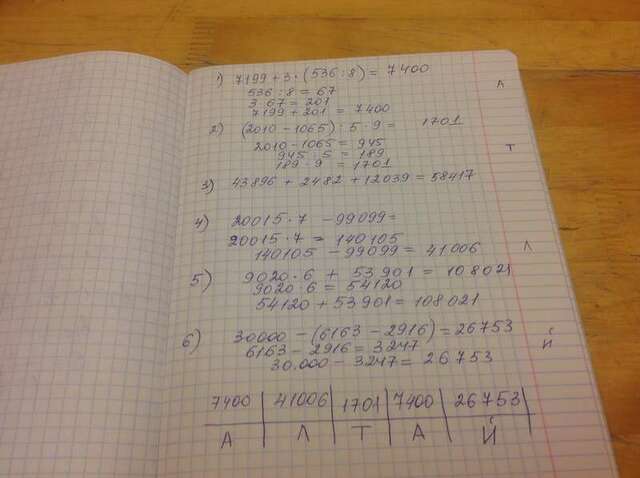 1) 7199 + 3 · (536 : 8) = 7400
536 : 8 = 67
3 · 67 = 201
7199 + 201 = 7400
А
2) (2010 - 1065) : 5 · 9 = 1701
2010 - 1065 = 945
945 : 5 = 189
189 · 9 = 1701
Т
3) 43896 + 2482 + 12039 = 58417
4) 20015 · 7 - 99099 =
20015 · 7 = 140105
140105 - 99099 = 41006
Л
5) 9020 · 6 + 53901 = 108021
9020 · 6 = 54120
54120 + 53901 = 108021
6) 30000 - (6163 - 2916) = 26753
6163 - 2916 = 3247
30.000 - 3247 = 26753
Й
7400 41006 1701 7400 26753
А Л Т А Й